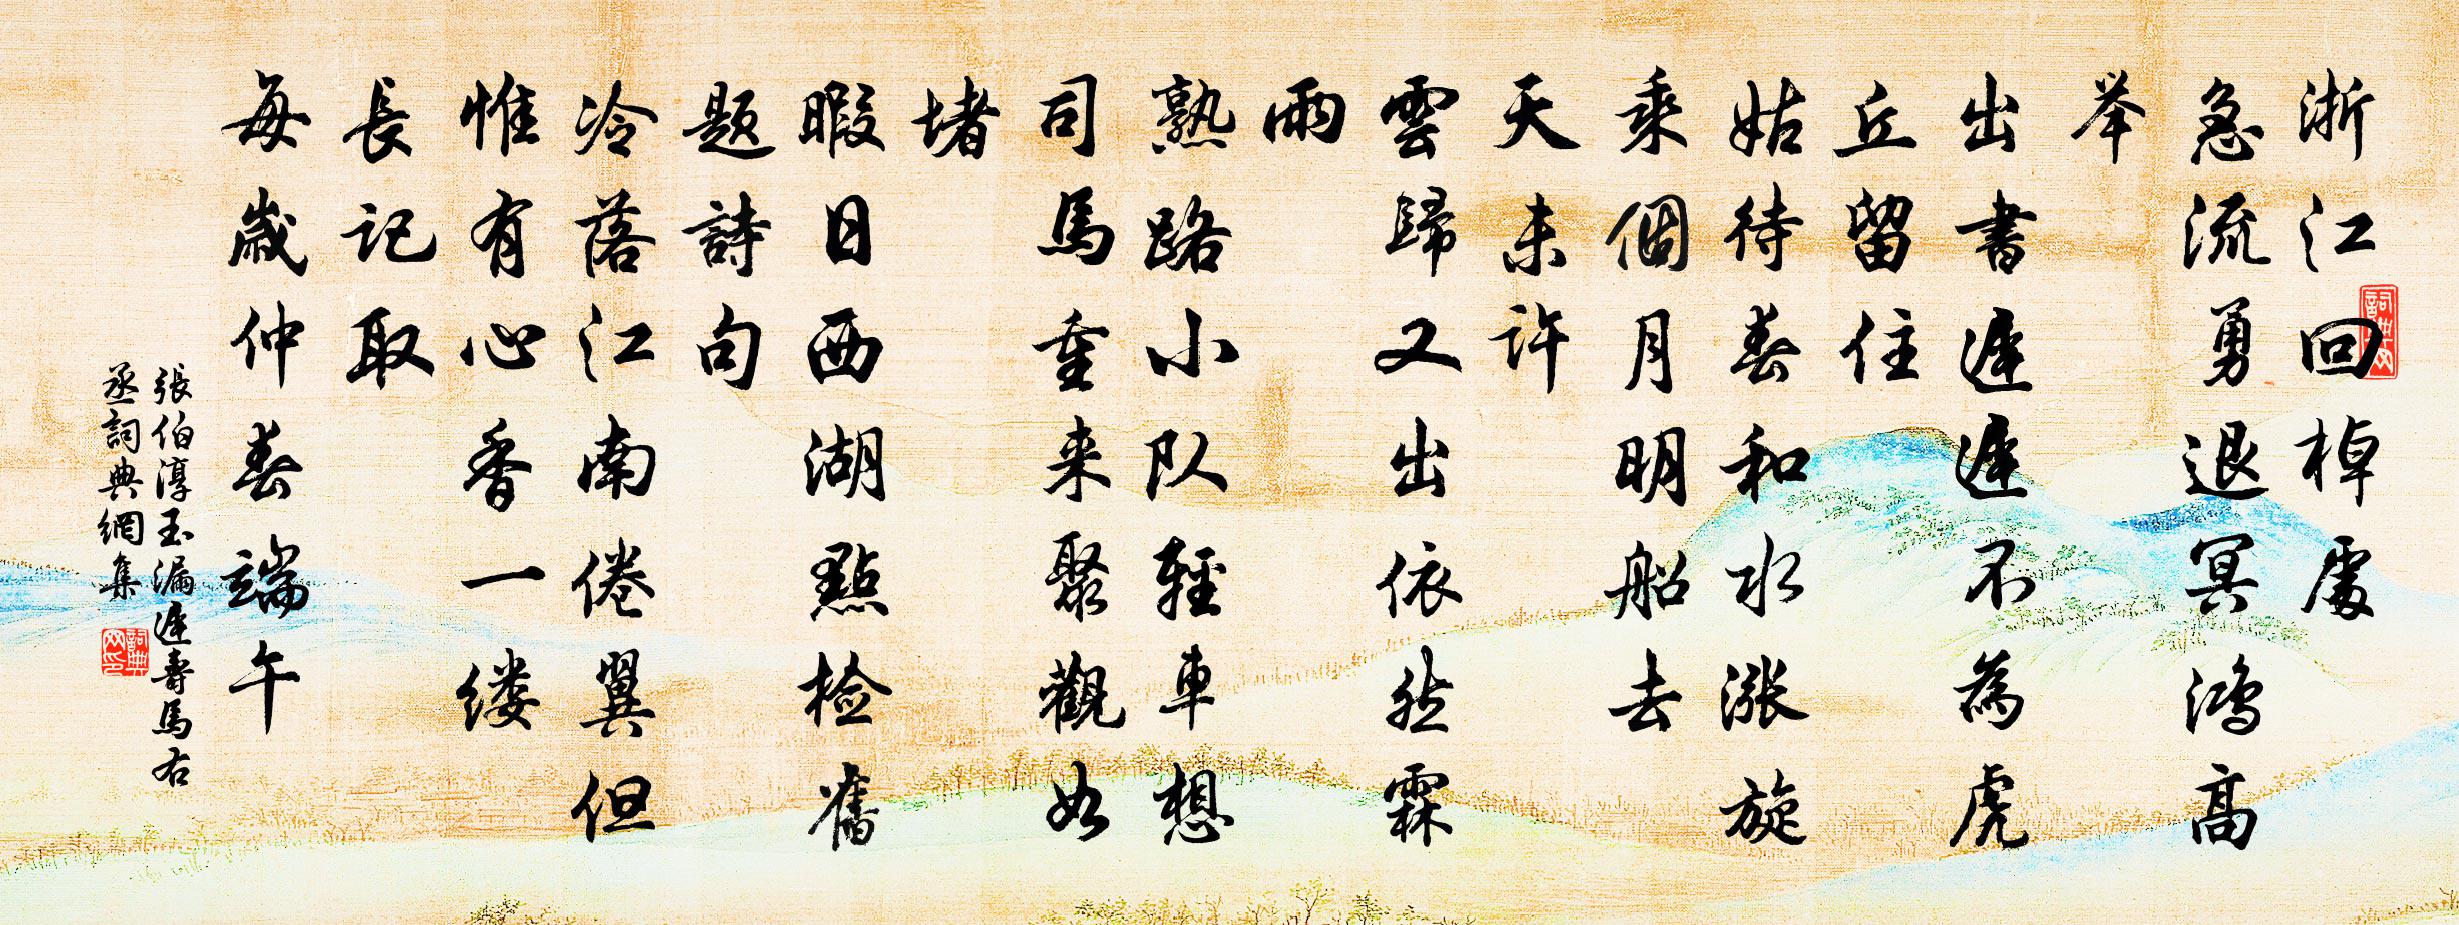 浙江回棹處
急流勇退冥鴻高
举
出書遲遲不為虎
丘留住
姑待春和水漲旋
乘個月明船去
天未許
雲歸又出依然霖
雨
熟路小队輕車想
司馬重来聚觀如
堵
暇日西湖點檢舊
题詩句
冷落江南倦翼但
惟有心香一缕
長記取
每歲仲春端午
張伯淳玉漏遲壽馬右
丞詞典網集